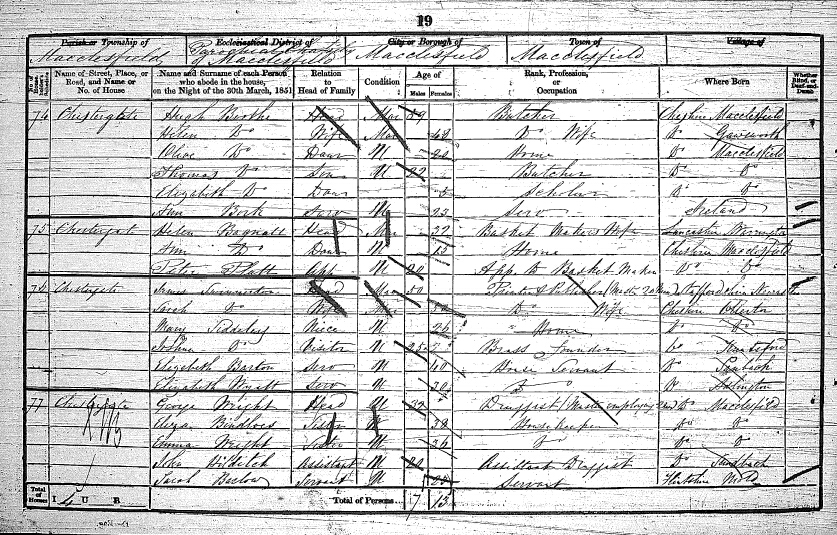 19
Parish or Township of Ecclesiastical District of City or Borough of Town of Village of
Macclesfield of Macclesfield Macclesfield Macclesfield
Name of Street, Place, or Road, and Name or No. of House
Name and Surname of each Person who abode in the house, on the Night of the 30th March, 1851
Relation to Head of Family
Condition
Age of
Males Females
Rank, Profession, or Occupation
Where Born
Whether Blind, or Deaf-and-Dumb
74 Chestergate Hugh Head Mar 59 Butcher Cheshire Macclesfield
Helen Do Wife Mar 48 Do Wife Do Gawsworth
Olive Do Daur U Home Do Macclesfield
Thomas Do Son U 22 Butcher Do Do
Elizabeth Do Daur 5 Scholar Do Do
Ann Serv U 23 Serv Ireland
75 Chestergat Helen Bagnall Head Mar Basket Makers Wife Lancashire Warrington
Ann Do Daur U 15 Home Cheshire Macclesfield
Peter Platt App U 20 App to Basket Maker Do Do
76 Chestergat James Swinnerton Head Mar 50 Printer & Publisher Staffordshire
Sarah Do Wife Mar 50 Do Wife Cheshire Ollerton
Mary Niece U 26 Home Do Do
Joshua Do Visitor U 25 Brass founder Do Knutsford
Elizabeth Barton Serv U 40 House Servant Do Sanbach
Elizabeth Serv U 20 Do Do
77 Chestergate George Wright Head U 32 Druggist Master employing Do Macclesfield
Eliza Bindloss Sister 38 House keeper Do Do
Emma Wright Sister U 36 Do Do Do
John Assistant U 20 Assistant Druggist Do Sandbach
Sarah Barlow Servant U Servant Flintshire Mold
Total of Houses I 4 U B Total of Persons... 7 13